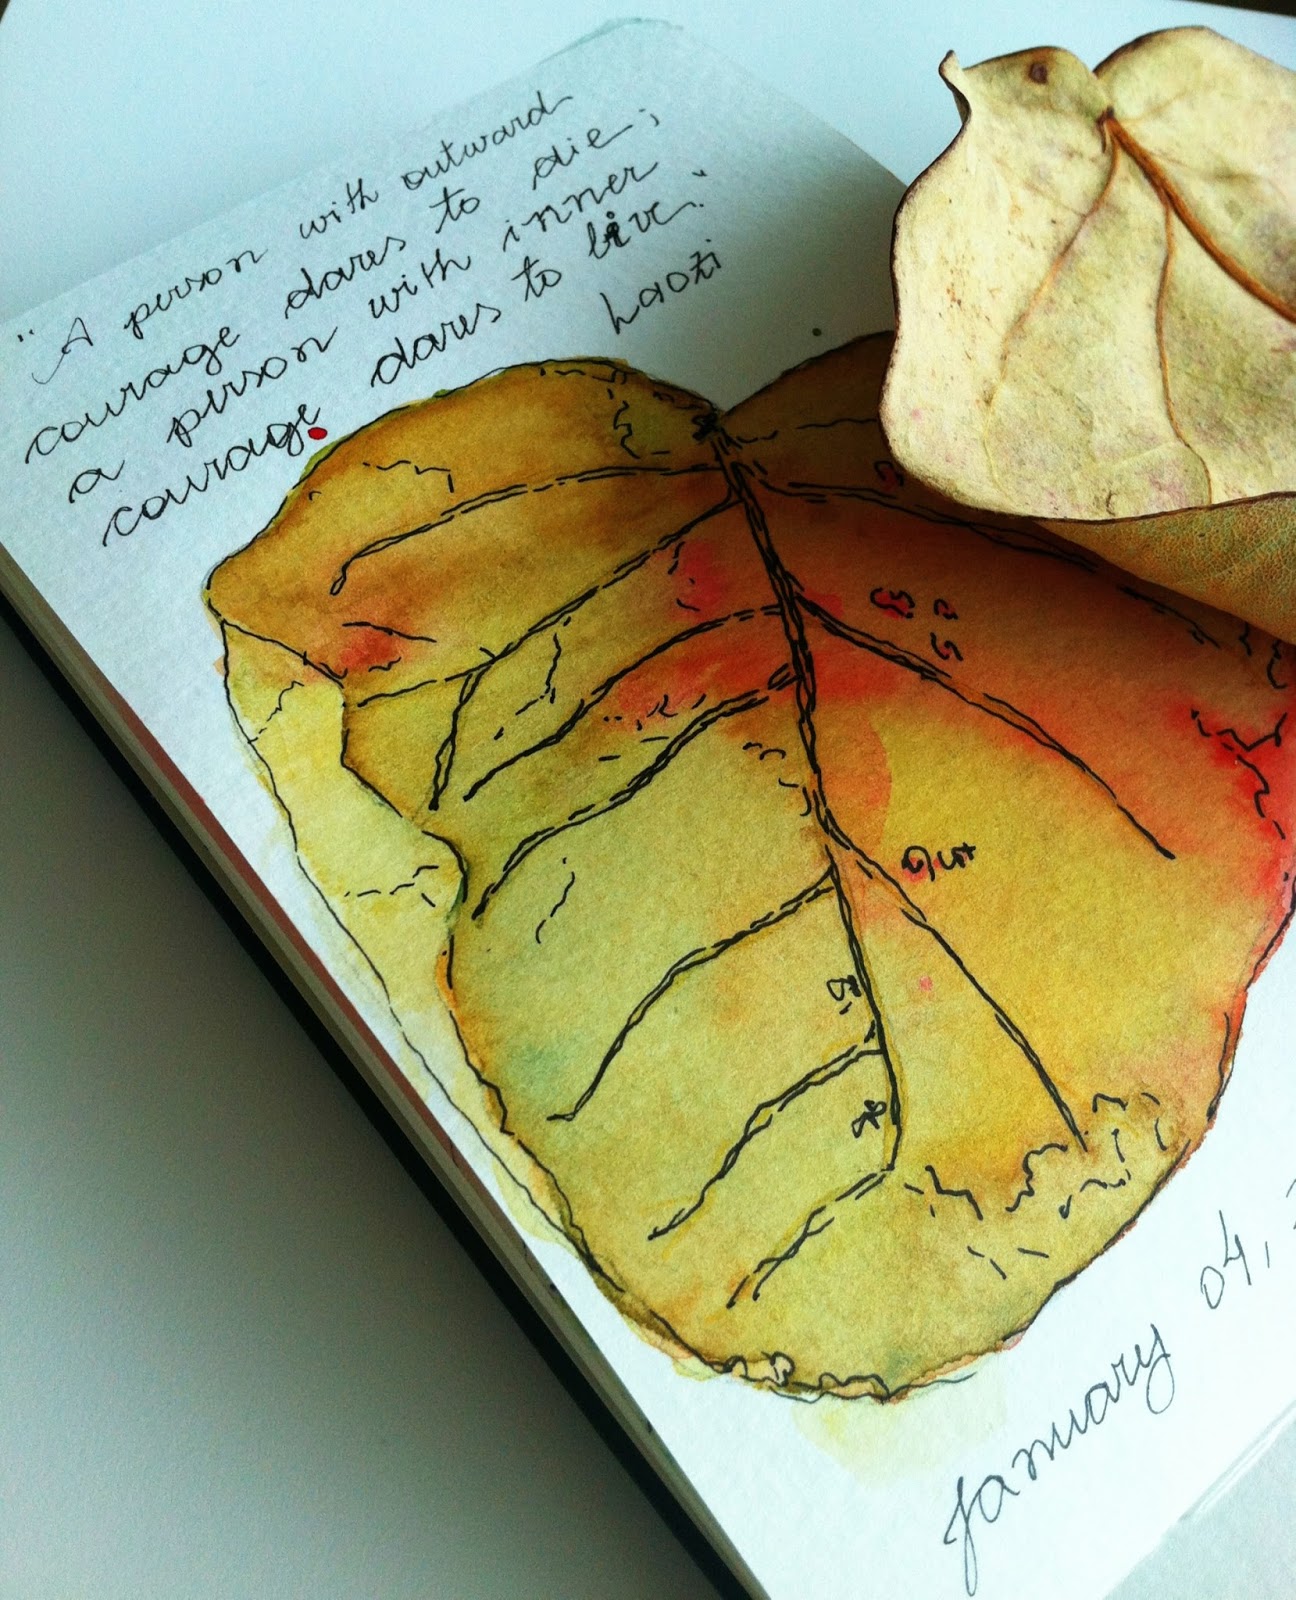 "A person with outward
courage dares to die;
a person with inner
courage dares to live."
Laozi
January 04,